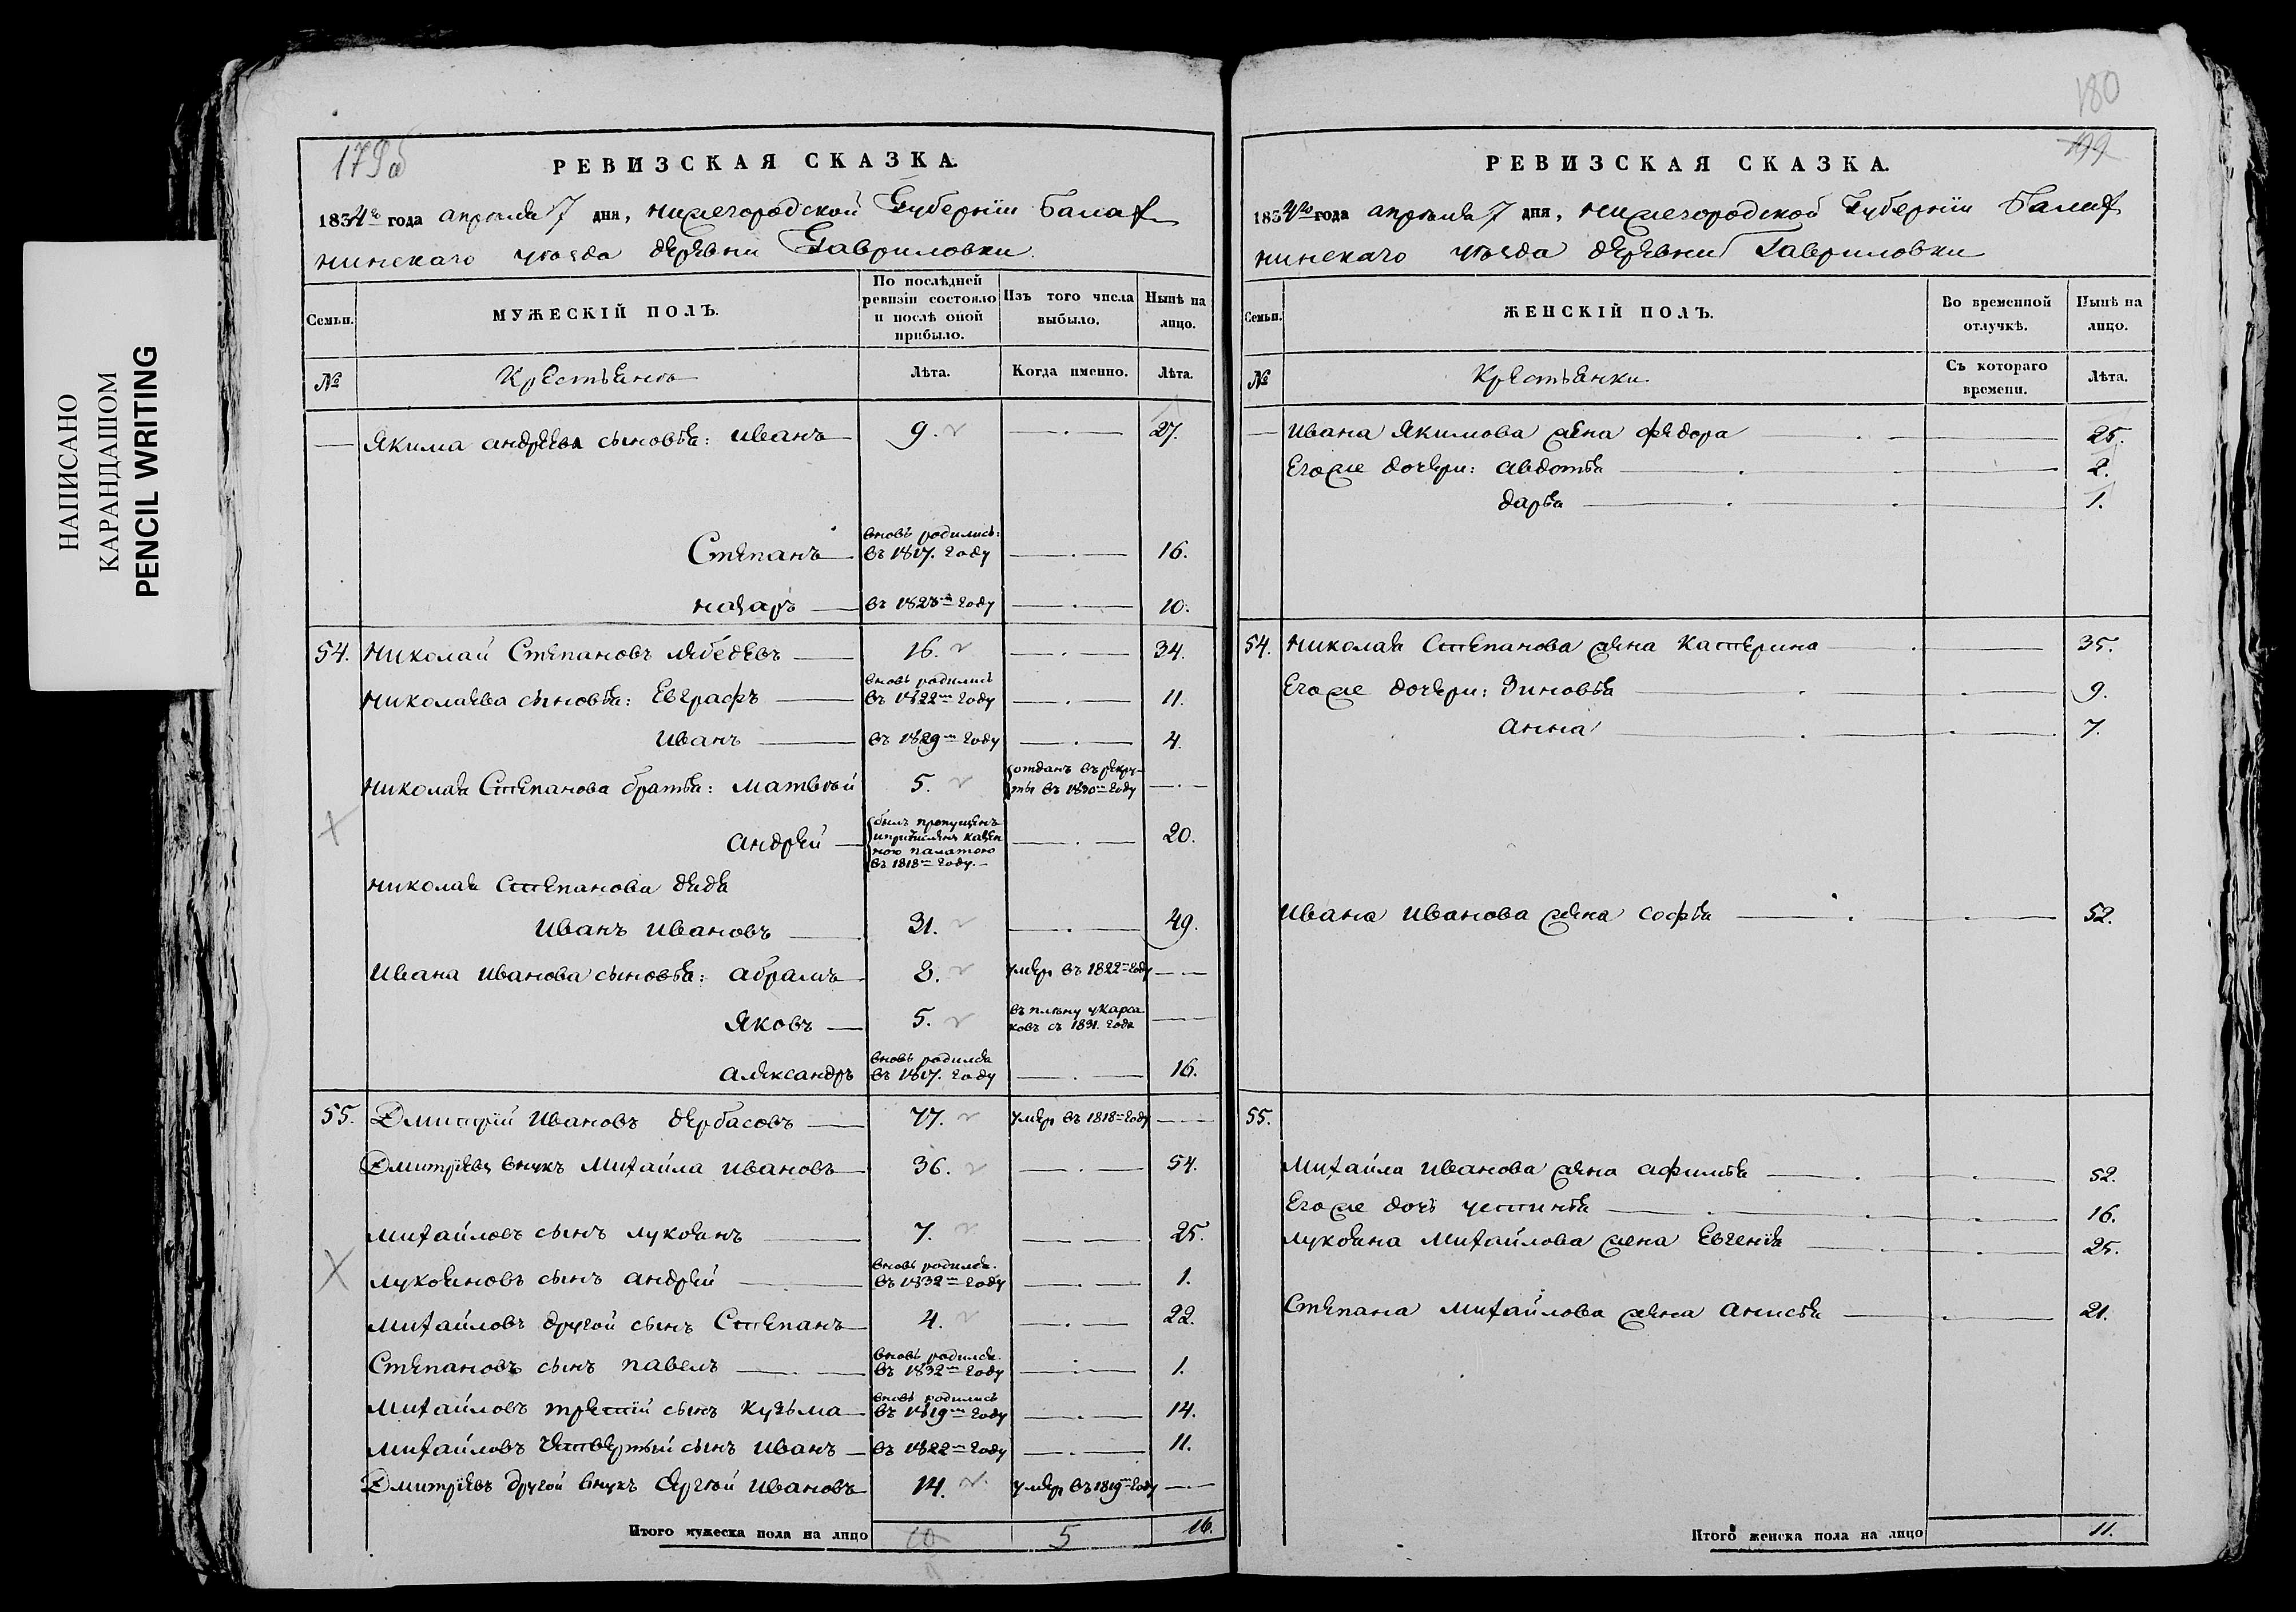 НАПИСАНО
КАРАНДАШОМ
PENCIL WRITING
179об
РЕВИЗСКАЯ СКАЗКА.
1834го года апреля 7 дня, нижегородской Губернiи Балах
нинскаго уѣзда деревни Гавриловки.
Семьи.
МУЖЕСКІЙ ПОЛЪ.
По послѣдней ревизіи состояло и послѣ оной прибыло.
Изъ того числа выбыло.
Нынѣ на лицо.
№
Крестьянъ
Лѣта.
Когда именно.
Лѣта.
Якима андреева сыновья: иванъ 9. 27.
Степанъ вновь родились: въ 1817. году 16.
назаръ въ 1823м году 10.
54. николай Степановъ лебедевъ 16. 34.
николаева сыновья: Евграфъ вновь родились въ 1822м году 11.
иванъ въ 1829м году 4.
николая Степанова братья: матвѣй 5. отданъ въ рекру-
ты въ 1830м году
андрей былъ пропущенъ
и причисленъ казен
ною палатою
въ 1818м году. 20.
николая Степанова дядя
иванъ ивановъ 31. 49.
ивана иванова сыновья: абрамъ 8. умеръ въ 1822м году
Яковъ 5. въ плѣну у карса
ковъ съ 1831. года
александръ вновь родился въ 1817. году 16.
55. Дмитрий ивановъ дербасовъ 77. умеръ въ 1818м году
Дмитрiевъ внукъ михайла ивановъ 36. 54.
михайловъ сынъ лукоянъ 7. 25.
лукояновъ сынъ андрей вновь родился. въ 1832м году 1.
михайловъ другой сынъ Степанъ 4. 22.
Степановъ сынъ павелъ вновь родился. въ 1832м году 1.
михайловъ третiй сынъ кузьма вновь родились въ 1819м году 14.
михайловъ четвертый сынъ иванъ въ 1822м году 11.
Дмитрiевъ другой внукъ Сергѣй ивановъ 14. умеръ въ 1819м году
Итого мужеска пола на лицо 10 5 16.
180
199
РЕВИЗСКАЯ СКАЗКА.
1834го года апреля 7 дня, нижегородской Губернiи Балах
нинскаго уѣзда деревни Гавриловки
Семьи.
ЖЕНСКІЙ ПОЛЪ.
Во временной отлучкѣ.
Нынѣ на лицо.
№
Крестьянки.
Съ котораго времени.
Лѣта.
ивана якимова жена федора 25.
Егоже дочери: авдотья 2.
дарья 1.
54. николая Степанова жена катерина 35.
Егоже дочери: Зиновья 9.
анна 7.
ивана иванова жена софья 52.
55.
михайла иванова жена афимья 52.
Егоже дочь устинья 16.
лукояна михайлова жена Евгенiя 25.
Степана михайлова жена анисья 21.
Итого женска пола на лицо 11.